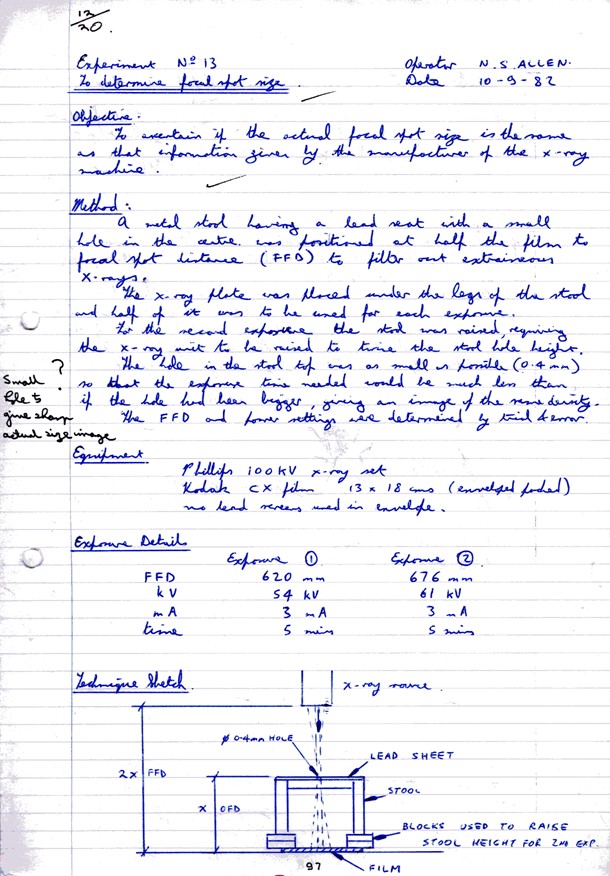 12/20.
Experiment Nº 13 Operator N.S.ALLEN.
To determine focal spot size. Date 10-9-82
Objective:
To ascertain if the actual focal spot size is the same
as that information given by the manufacturer of the x-ray
machine.
Method:
A metal stool having a lead seat with a small
hole in the centre was positioned at half the film to
focal spot distance (FFD) to filter out extraineous
x-rays.
The x-ray plate was placed under the legs of the stool
and half of it was to be used for each exposure.
For the second exposure the stool was raised, requiring
the x-ray unit to be raised to twice the stool hole height.
The hole in the stool top was as small as possible (0.4mm)
so that the exposure time needed would be much less than
if the hole had been bigger, giving an image of the same density.
The FFD and power settings were determined by trial & error.
?
Small
hole to
give sharp
actual size image
Equipment
Phillips 100KV x-ray set
Kodak CX film 13 x 18 cms (enveloped packed)
no lead screens used in envelope.
Exposure Details
Exposure ① Exposure ②
FFD 620 mm 676 mm
kV 54 kV 61 kV
mA 3 mA 3 mA
time 5 mins 5 mins
Technique Sketch.
x-ray source.
ø 0.4mm HOLE
LEAD SHEET
2x FFD
STOOL
x OFD
BLOCKS USED TO RAISE
STOOL HEIGHT FOR 2nd EXP.
97
FILM